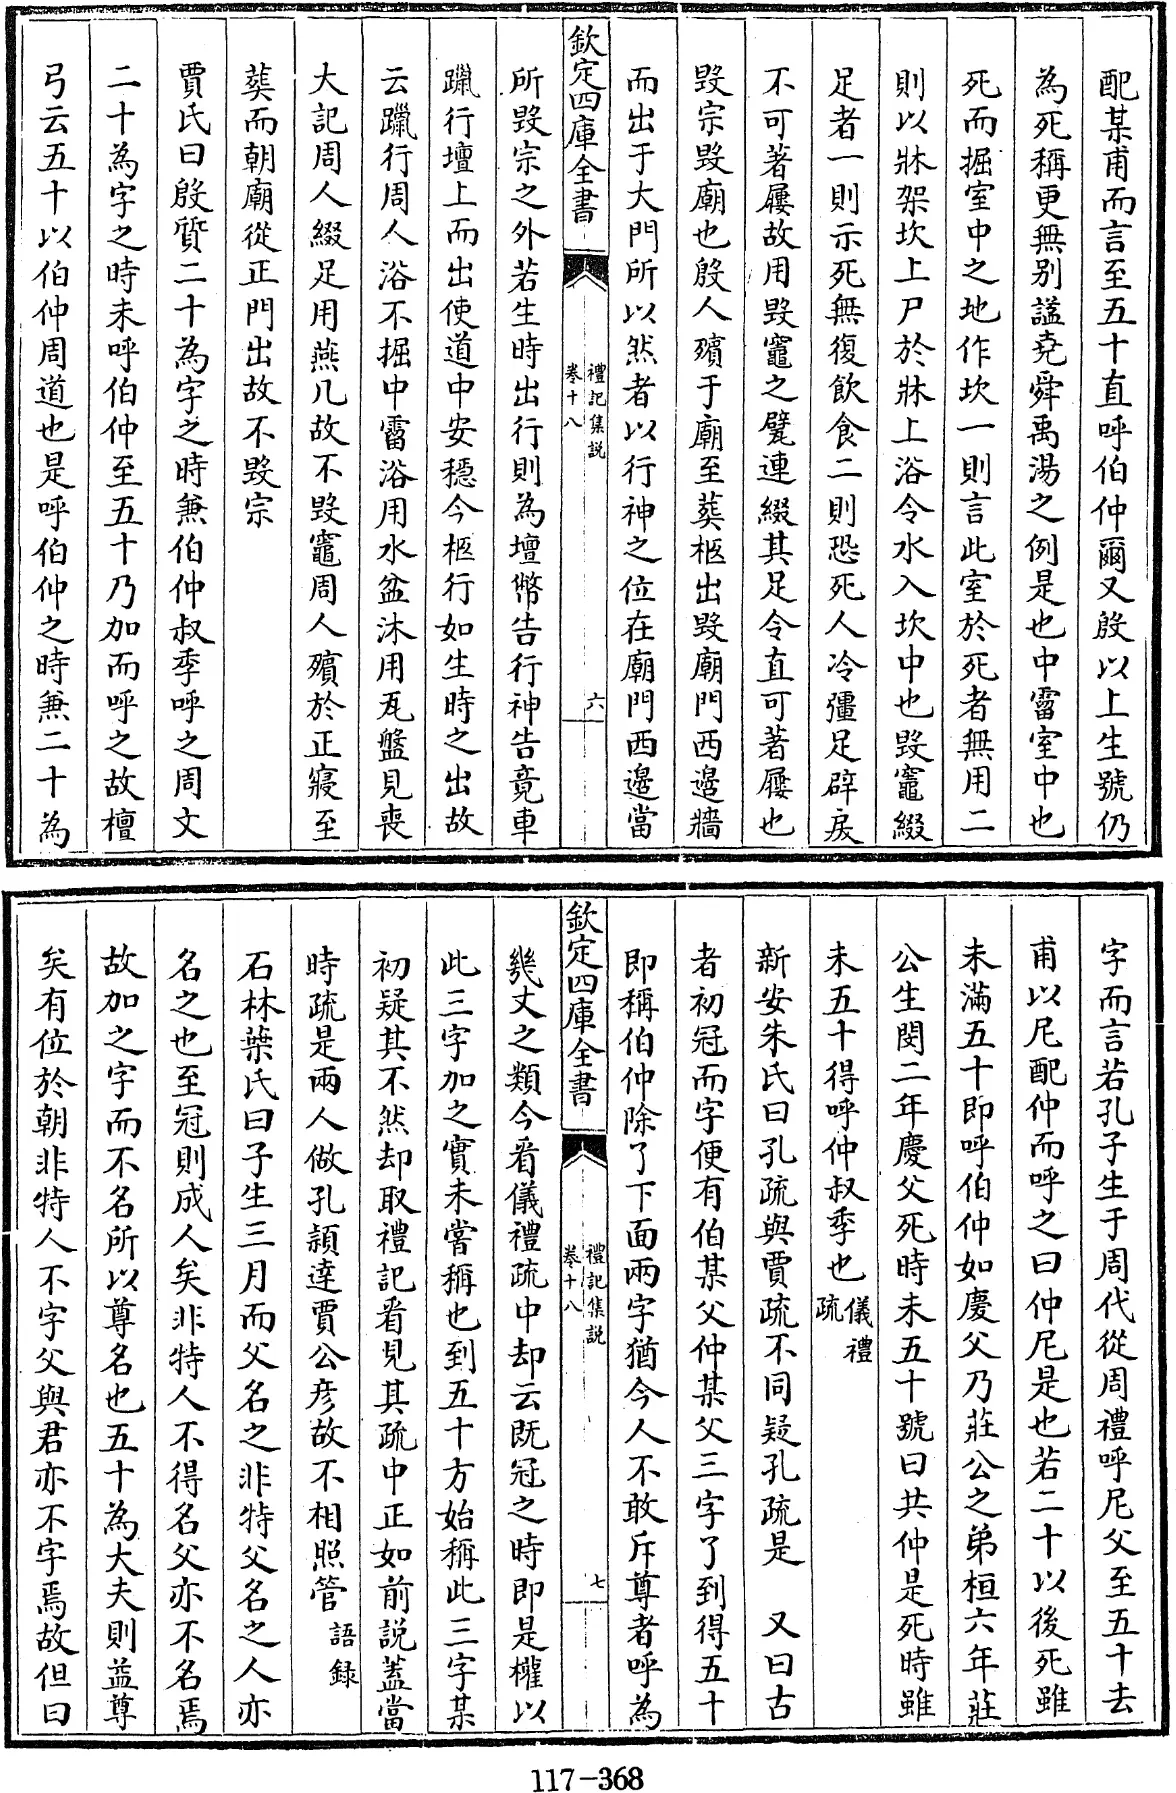 配某甫而言至五十直呼伯仲爾又殷以上生號仍
為死稱更無别謚堯舜禹湯之例是也中霤室中也
死而掘室中之地作坎一則言此室於死者無用二
則以牀架坎上尸於牀上浴令水入坎中也毀竈綴
足者一則示死無復飲食二則恐死人冷彊足辟戾
不可著屨故用毀竈之甓連綴其足令直可著屨也
毀宗毀廟也殷人殯于廟至葬柩出毀廟門西邉牆
而出于大門所以然者以行神之位在廟門西邉當
欽定四庫全書
禮記集説
卷十八
六
所毀宗之外若生時出行則為壇幣告行神告竟車
躐行壇上而出使道中安穩今柩行如生時之出故
云躐行周人浴不掘中霤浴用水盆沐用瓦盤見喪
大記周人綴足用燕几故不毀竈周人殯於正寢至
葬而朝廟從正門出故不毀宗
賈氏曰殷質二十為字之時兼伯仲叔季呼之周文
二十為字之時未呼伯仲至五十乃加而呼之故檀
弓云五十以伯仲周道也是呼伯仲之時兼二十為
字而言若孔子生于周代從周禮呼尼父至五十去
甫以尼配仲而呼之曰仲尼是也若二十以後死雖
未滿五十即呼伯仲如慶父乃莊公之弟桓六年莊
公生閔二年慶父死時未五十號曰共仲是死時雖
未五十得呼仲叔季也儀禮疏
新安朱氏曰孔疏與賈疏不同疑孔疏是　又曰古
者初冠而字便有伯某父仲某父三字了到得五十
即稱伯仲除了下面兩字猶今人不敢斥尊者呼為
欽定四庫全書
禮記集説
卷十八
七
幾丈之類今看儀禮疏中却云既冠之時即是權以
此三字加之實未嘗稱也到五十方始稱此三字某
初疑其不然却取禮記看見其疏中正如前説蓋當
時疏是兩人做孔穎達賈公彦故不相照管語録
石林葉氏曰子生三月而父名之非特父名之人亦
名之也至冠則成人矣非特人不得名父亦不名焉
故加之字而不名所以尊名也五十為大夫則益尊
矣有位於朝非特人不字父與君亦不字焉故但曰
117-368